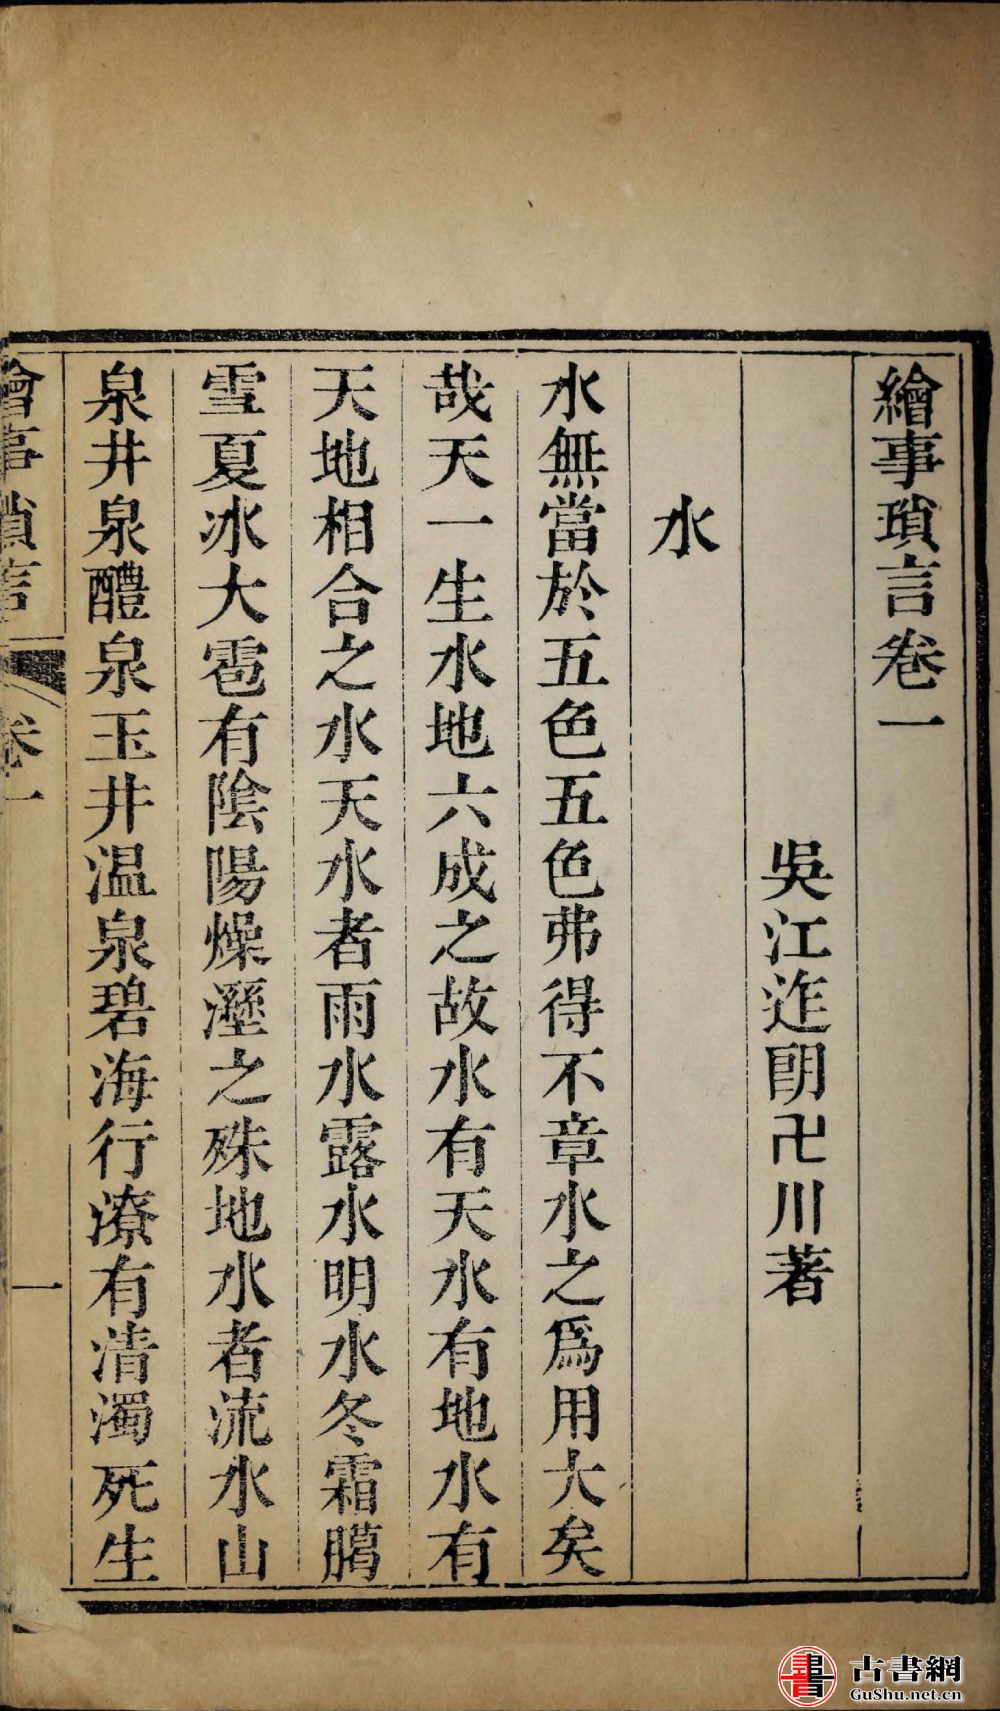 繪事瑣言卷一
吳江迮朗卍川著
水
水無當於五色五色弗得不章水之爲用大矣
哉天一生水地六成之故水有天水有地水有
天地相合之水天水者雨水露水明水冬霜臈
雪夏冰大雹有陰陽燥溼之殊地水者流水山
泉井泉醴泉玉井温泉碧海行潦有清濁死生
繪事瑣言 卷一 一
古書網
GuShu.net.cn